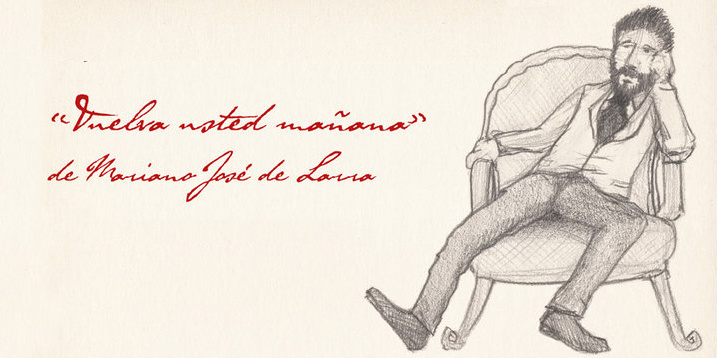 «Vuelva usted mañana»
de Mariano José de Larra